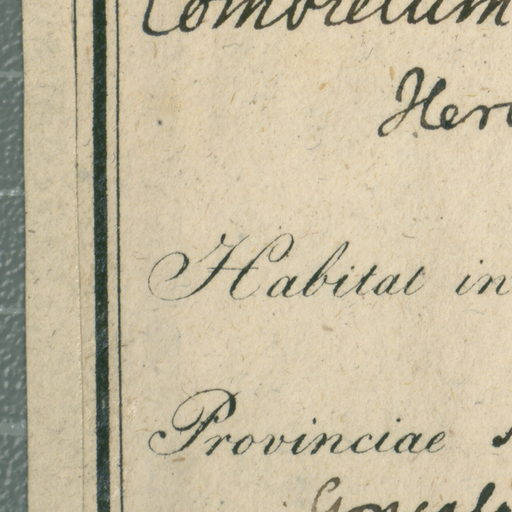 Combretum
Her
Habitat in
Provinciae